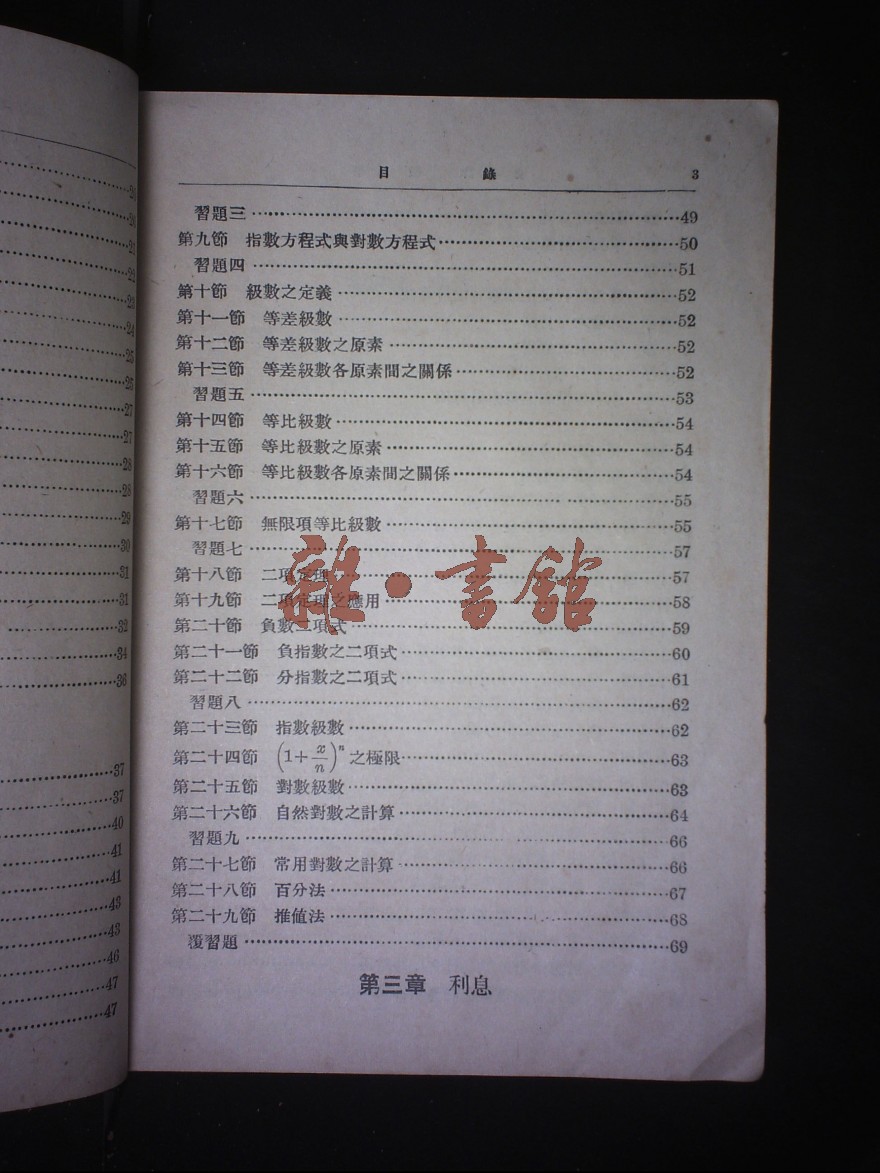 24
20
21
22
23
24
25
25
27
27
28
28
29
30
31
31
32
34
36
37
37
40
41
41
43
43
46
47
47
目 錄 3
習題三……49
第九節 指數方程式與對數方程式……50
習題四……51
第十節 級數之定義……52
第十一節 等差級數……52
第十二節 等差級數之原素……52
第十三節 等差級數各原素間之關係……52
習題五……53
第十四節 等比級數……54
第十五節 等比級數之原素……54
第十六節 等比級數各原素間之關係……54
習題六……55
第十七節 無限項等比級數……55
習題七……57
第十八節 二項定理……57
第十九節 二項定理之應用……58
第二十節 負數二項式……59
第二十一節 負指數之二項式……60
第二十二節 分指數之二項式……61
習題八……62
第二十三節 指數級數……62
第二十四節 (1+x/n)^n 之極限……63
第二十五節 對數級數……63
第二十六節 自然對數之計算……64
習題九……66
第二十七節 常用對數之計算……66
第二十八節 百分法……67
第二十九節 推値法……68
覆習題……69
第三章 利息
雜·書館